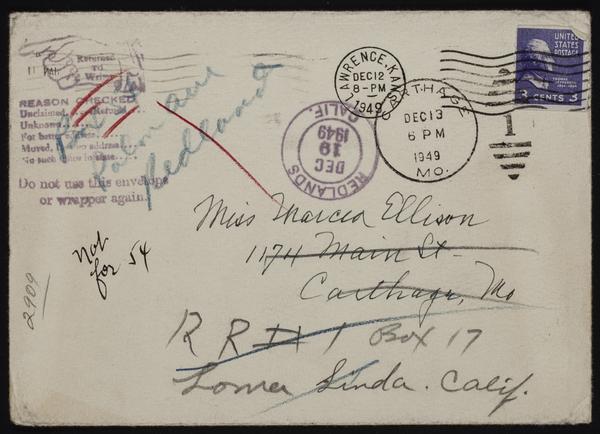 Returned
To
Writer
REASON CHECKED
Unclaimed..... Refused.....
Unknown
For better address
Moved, Left no address
No such office in state
Do not use this envelope
or wrapper again.
Palm ave
Redlands
LAWRENCE, KANS.
DEC 12
8-PM
1949
CARTHAGE
DEC 13
6 PM
1949
MO.
1
UNITED
STATES
POSTAGE
3 CENTS 3
REDLANDS
DEC
19
1949
CALIF.
Miss Marcea Ellison
1174 Main St.
Carthage, Mo
R R # 1 Box 17
Loma Linda. Calif.
Not
for 54
2909